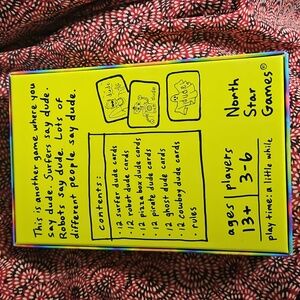 This is another game where you
say dude. Surfers say dude.
Robots say dude. Lots of
different people say dude.
contents:
· 12 surfer dude cards
· 12 robot dude cards
· 12 pizza box dude cards
· 12 pirate dude cards
· 12 ghost dude cards
· 12 cowboy dude cards
· rules
North
Star
Games®
ages players
13+ 3-6
play time: a little while